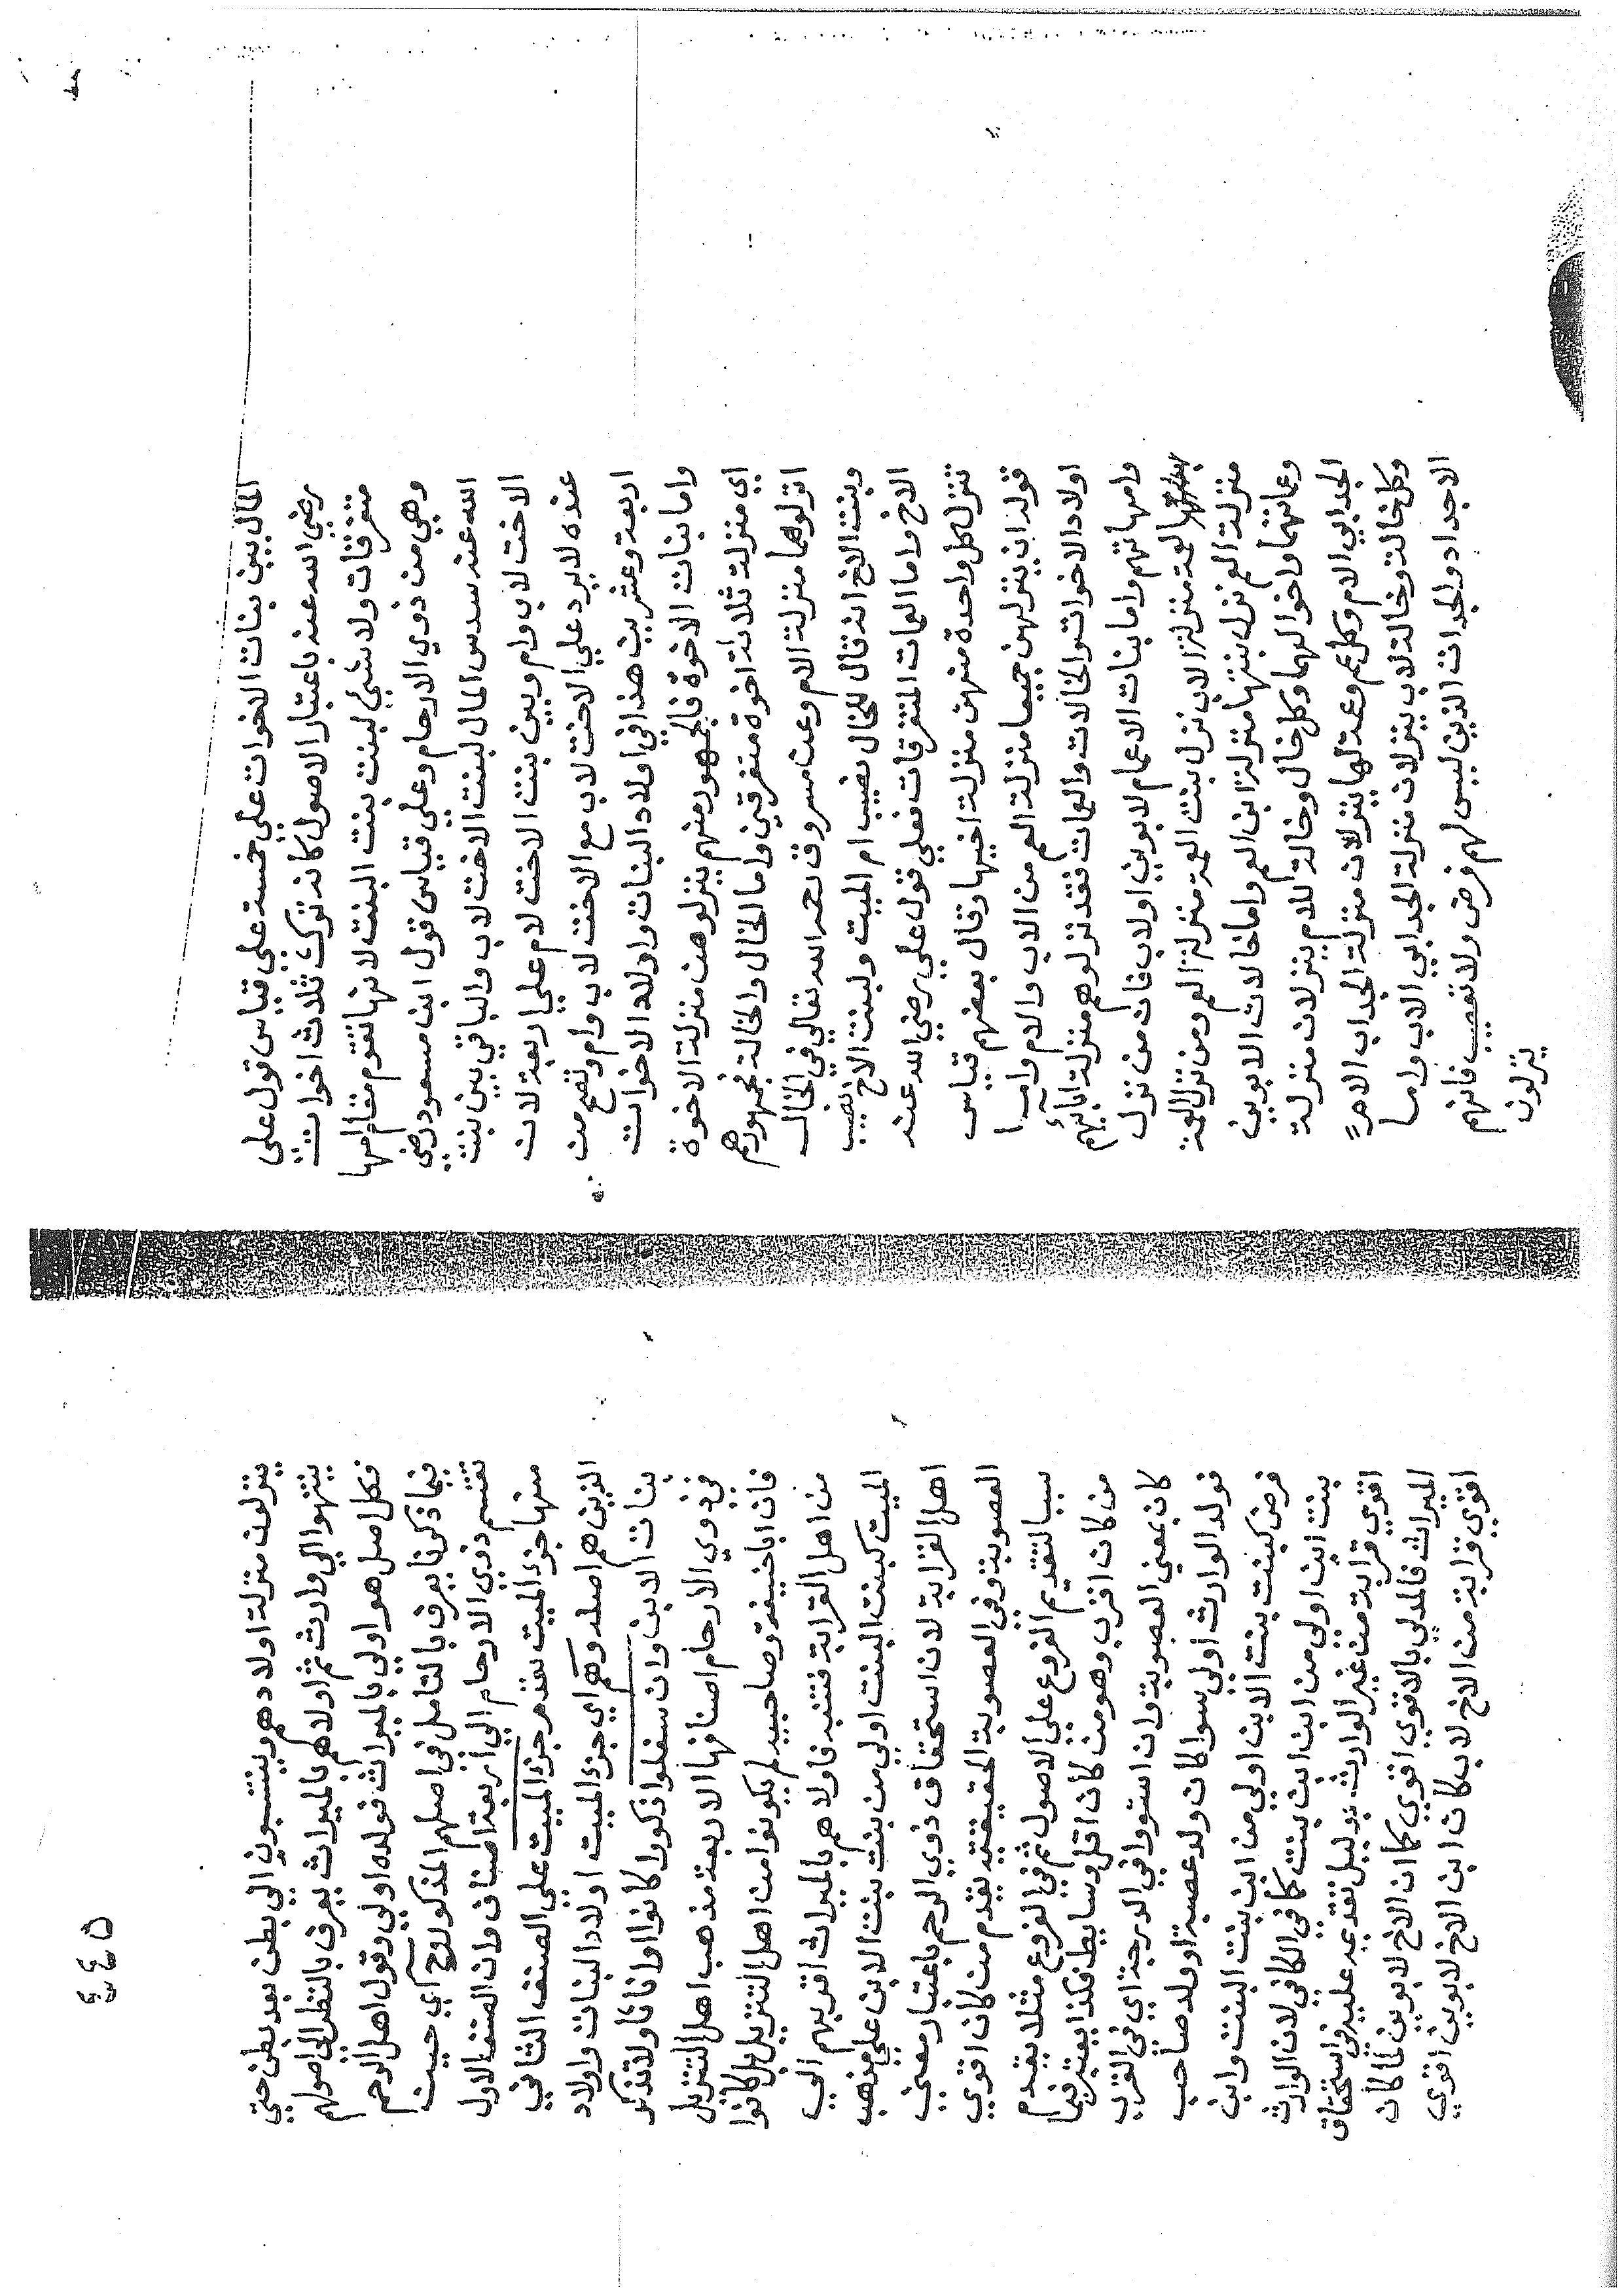 المال بين بنات الاخوات علي خمسة علي قياس قول علي
رضي الله عنه باعتبار الاصول كانه ترك ثلاث اخوات
متفرقات ولا شي لبنت بنت البنت لانها تقوم مقام امها
وهي من ذوي الارحام وعلي قياس قول ابن مسعود رضي
الله عنه سدس المال لبنت الاخت لاب والباقي بين بنت
الاخت لاب وام وبين بنت الاخت لام علي اربعة لان
عنده لا يرد علي الاخت لاب مع الاخت لاب وام وتصح من
اربعة وعشرين هذا في اولاد البنات واولاد الاخوات
واما بنات الاخوة فالجمهور منهم ينزلوهن منزلة الاخوة
اي منزلة ثلاثة اخوة متفرقين واما الخال والخالة فجمهورهم
انزلوهما منزلة الام وعن مسروق رحمه الله تعالي في الخال
وبنت الاخ انه قال للخال نصيب ام الميت ولبنت الاخ نصيب
الاخ واما العمات المتفرقات فعلي قول علي رضي الله عنه
تنزل كل واحدة منهن منزلة اخيها وقال بعضهم قياس
قوله ان ينزلهن جميعا منزلة العم من الاب والام واما
اولاد الاخوات والخالات والعمات فقد نزلوهم منزلة ابائهم
وامهاتهم واما بنات الاعمام لابوين اولاب فان من نزل
العمة منزلة الاب نزل بنت العمة منزلة العم ومن نزل العمة
منزلة العم نزل بنتها منزلة ابن العم واما خالات الابوين
وعماتهما واخوالهما وكل خال وخالة للام ينزلان منزلة
الجد ابي الام وكل عم وعمة لها ينزلان منزلة الجد اب الام
وكل خالة وخالة لاب ينزلان منزلة الجد ابي الاب واما
الاجداد والجدات الذين ليس لهم فرض ولا تعصيب فانهم
ينزلون
٥٤٤
ينزلون منزلة اولادهم وينتسبون الي بطن بعد بطن حتي
ينتهوا الي وارث ثم اولاهم بالميراث يعرف بالنظر الي اصولهم
فكل اصل هو اولي بالميراث فولده اولي وقول اهل الرحم
فيما ذكرنا يعرف بالتامل في اصلهم المذكور اي حيث
تقسم ذوي الارحام الي اربعة اصناف وان الصنف الاول
منها جزء الميت يقدم جزء الميت علي الصنف الثاني
الذين هم اصله وهم اي جزء الميت اولاد البنات واولاد
بنات الابن وان سفلوا ذكورا كانوا او اناثا ولا تذكر
في ذوي الارحام اصنافها الاربعة مذهب اهل التنزيل
فان ابا حنيفة وصاحبيه لم يكونوا من اهل التنزيل بل كانوا
من اهل القرابة فتنبه فاولاهم بالميراث اقربهم الي
الميت كبنت البنت اولي من بنت بنت الابن علي مذهب
اهل القرابة لان استحقاق ذوي الرحم باعتبار معني
العصوبة وفي العصوبة الحقيقية يقدم من كان اقوي
سببا لتقديم الفروع علي الاصول ثم في الفروع مثلا يقدم
من كان اقرب وهو من كان اقل وسايط فكذا يعتبر فيما
كان بمعني العصوبة وان استووا في الدرجة اي في القرب
فولد الوارث اولي سوا كان ولد عصبة او ولد صاحب
فرض كبنت بنت الابن اولي من ابن بنت البنت وابن
بنت ابن اولي من ابن ابن بنت كما في الكافي لان الوارث
اقوي قرابة من غير الوارث بدليل تقديمه عليه في استحقاق
الميراث فالمدلي بالاقوي اقوي كما ان الاخ لابوين لما كان
اقوي قرابة من الاخ لاب كان ابن الاخ لابوين اقوي